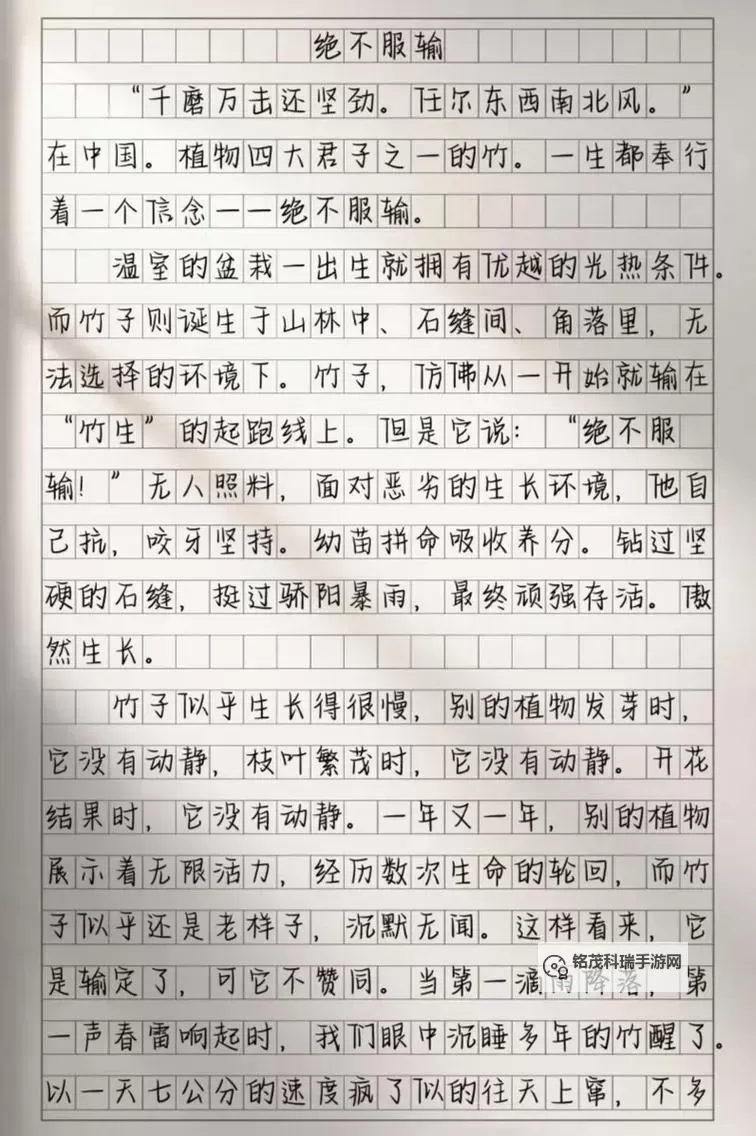 绝不服输
“千磨万击还坚劲。任尔东西南北风。”
在中国。植物四大君子之一的竹。一生都奉行
着一个信念一一绝不服输。
温室的盆栽一出生就拥有优越的光热条件。
而竹子则诞生于山林中、石缝间、角落里，无
法选择的环境下。竹子，仿佛从一开始就输在
“竹生”的起跑线上。但是它说：“绝不服
输！”无人照料，面对恶劣的生长环境，他自
己抗，咬牙坚持。幼苗拼命吸收养分。钻过坚
硬的石缝，挺过骄阳暴雨，最终顽强存活。傲
然生长。
竹子似乎生长得很慢，别的植物发芽时，
它没有动静，枝叶繁茂时，它没有动静。开花
结果时，它没有动静。一年又一年，别的植物
展示着无限活力，经历数次生命的轮回，而竹
子似乎还是老样子，沉默无闻。这样看来，它
是输定了，可它不赞同。当第一滴雨降落，第
一声春雷响起时，我们眼中沉睡多年的竹醒了。
以一天七公分的速度疯了似的往天上窜，不多
铭茂科瑞手游网